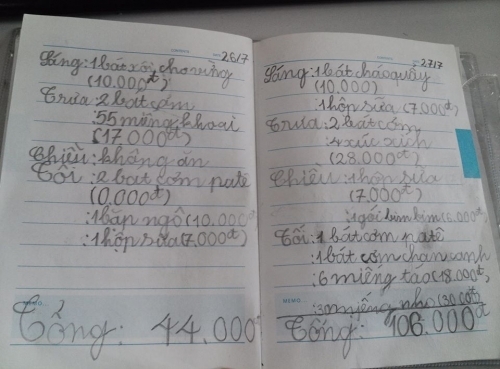 26/7
Sáng: 1 bát xôi cho ruồng
(10.000đ)
Trưa: 2 bát cơm
: 55 miếng khoai
(17.000đ)
Chiều: không ăn
Tối: 2 bát cơm patê
(0,000đ)
: 1 bắp ngô (10.000đ
: 1 hộp sữa (7.000đ)
Tổng: 44.000đ
27/7
Sáng: 1 bát cháo quẩy
(10.000)
1 hộp sữa (7.000đ)
Trưa: 2 bát cơm
: 4 xúc xích
(28.000đ)
Chiều: 1 hộp sữa
(7.000đ)
: 1 gói bim bim (6.000đ)
Tối: 1 bát cơm patê
: 1 bát cơm chan canh
: 6 miếng táo (18.000đ)
MEMO
: 3 miếng nho (30 00đ)
Tổng: 106.000đ